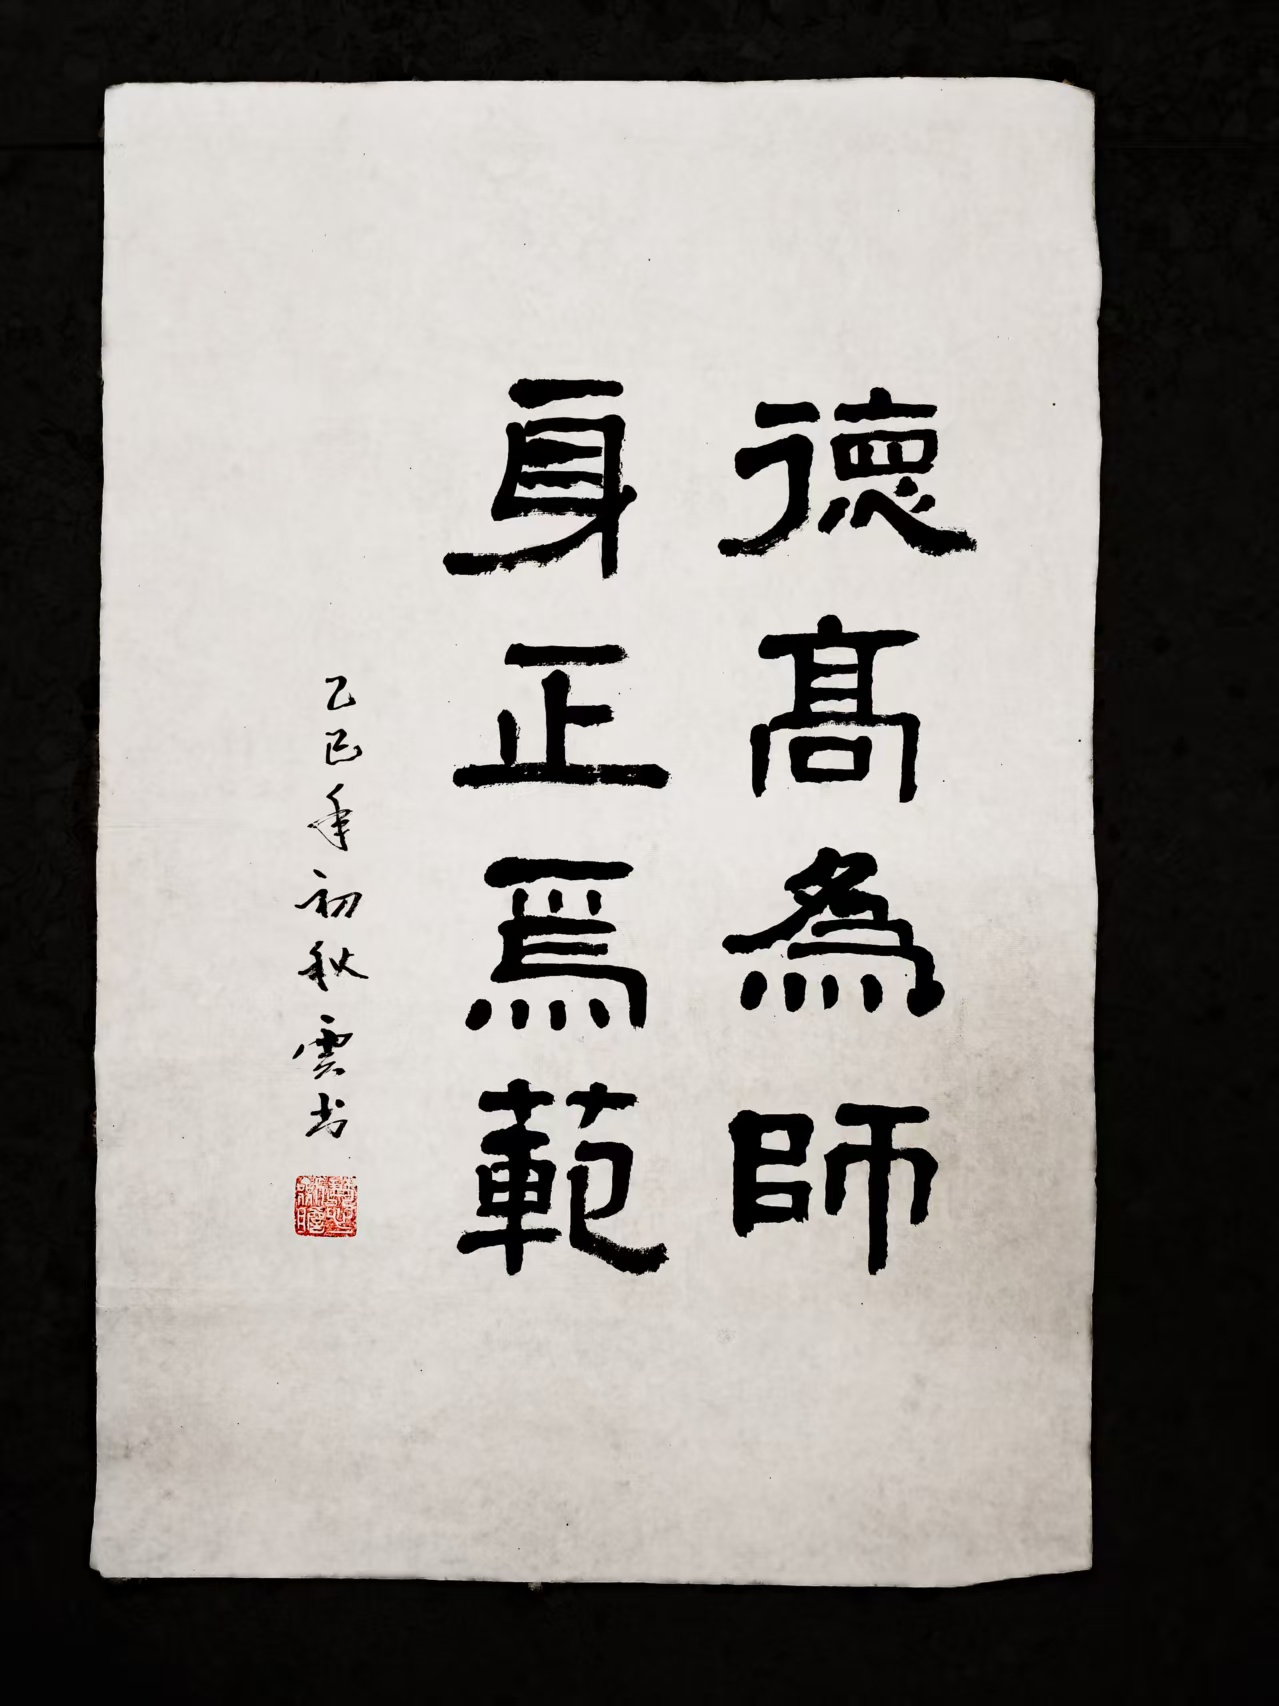 德高為師
身正爲範
乙巳年初秋雲书